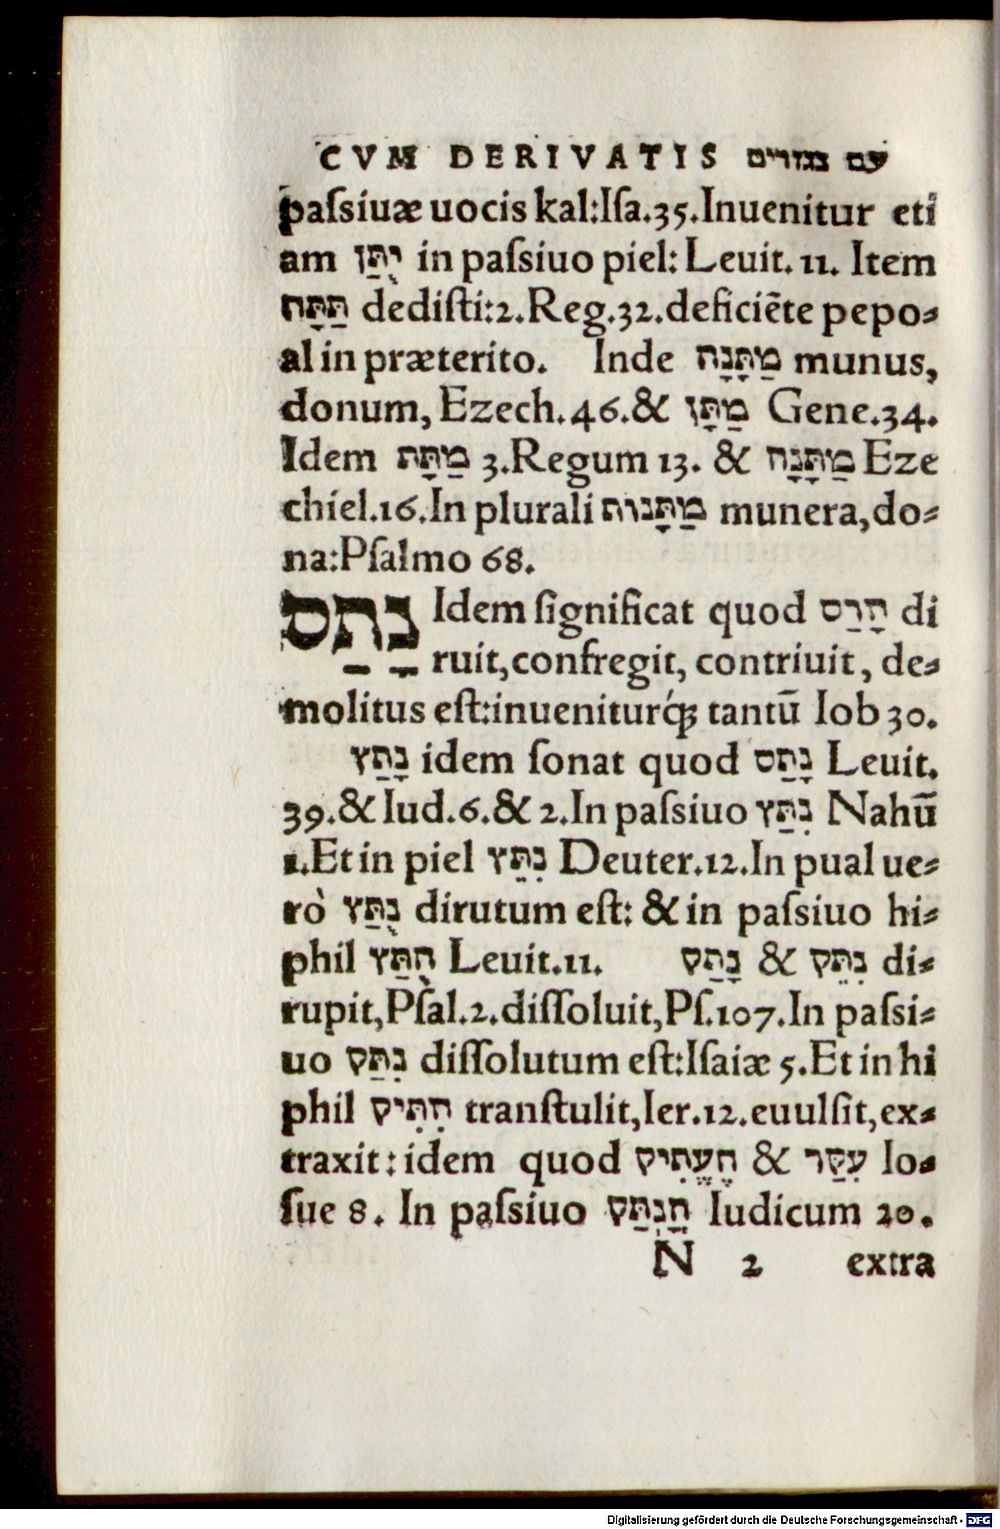 CVM DERIVATIS עם נגזרים
paſsiuæ uocis kal:Iſa.35.Inuenitur eti
am יֻתַּן in paſsiuo piel: Leuit. 11. Item
תַּתָּה dediſti:2.Reg.32.deficiēte pepo⸗
al in præterito. Inde מַתָּנָה munus,
donum, Ezech.46.& מַתָּן Gene.34.
Idem מַתָּת 3.Regum 13. & מַתָּנָה Eze
chiel.16.In plurali מַתָּנוֹת munera,do⸗
na:Pſalmo 68.
נָתַס Idem ſignificat quod הָרַס di
ruit,confregit, contriuit, de⸗
molitus eſt:inueniturq́; tantū Iob 30.
נָתַץ idem ſonat quod נָתַס Leuit.
39.& Iud.6.& 2.In paſsiuo נִתַּץ Nahū
1.Et in piel נִתֵּץ Deuter.12.In pual ue⸗
rò נֻתַּץ dirutum eſt: & in paſsiuo hi⸗
phil הֻתַּץ Leuit.11. נָתַק & נִתֵּק di⸗
rupit,Pſal.2.diſſoluit,Pſ.107.In paſsi⸗
uo נִתַּק diſſolutum eſt:Iſaiæ 5.Et in hi
phil הִתִּיק tranſtulit,Ier.12.euulſit,ex⸗
traxit: idem quod הֶעֱתִיק & עִקַּר Io⸗
ſue 8. In paſsiuo הָנְתַּק Iudicum 20.
N 2 extra
Digitalisierung gefördert durch die Deutsche Forschungsgemeinschaft - DFG